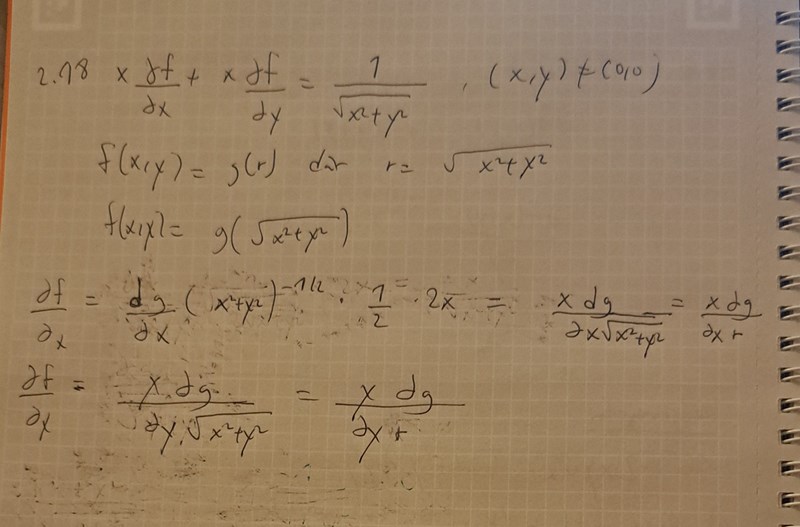 2.18 x ∂f/∂x + x ∂f/∂y = 1/√(x²+y²) , (x,y) ≠ (0,0)
f(x,y) = g(r) där r = √(x²+y²)
f(x,y) = g(√(x²+y²))
∂f/∂x = dg/∂x (x²+y²)^(-1/2) · 1/2 · 2x = x dg/(∂x√(x²+y²)) = x dg/(∂x r)
∂f/∂y = x dg/(∂y √(x²+y²)) = x dg/(∂y r)